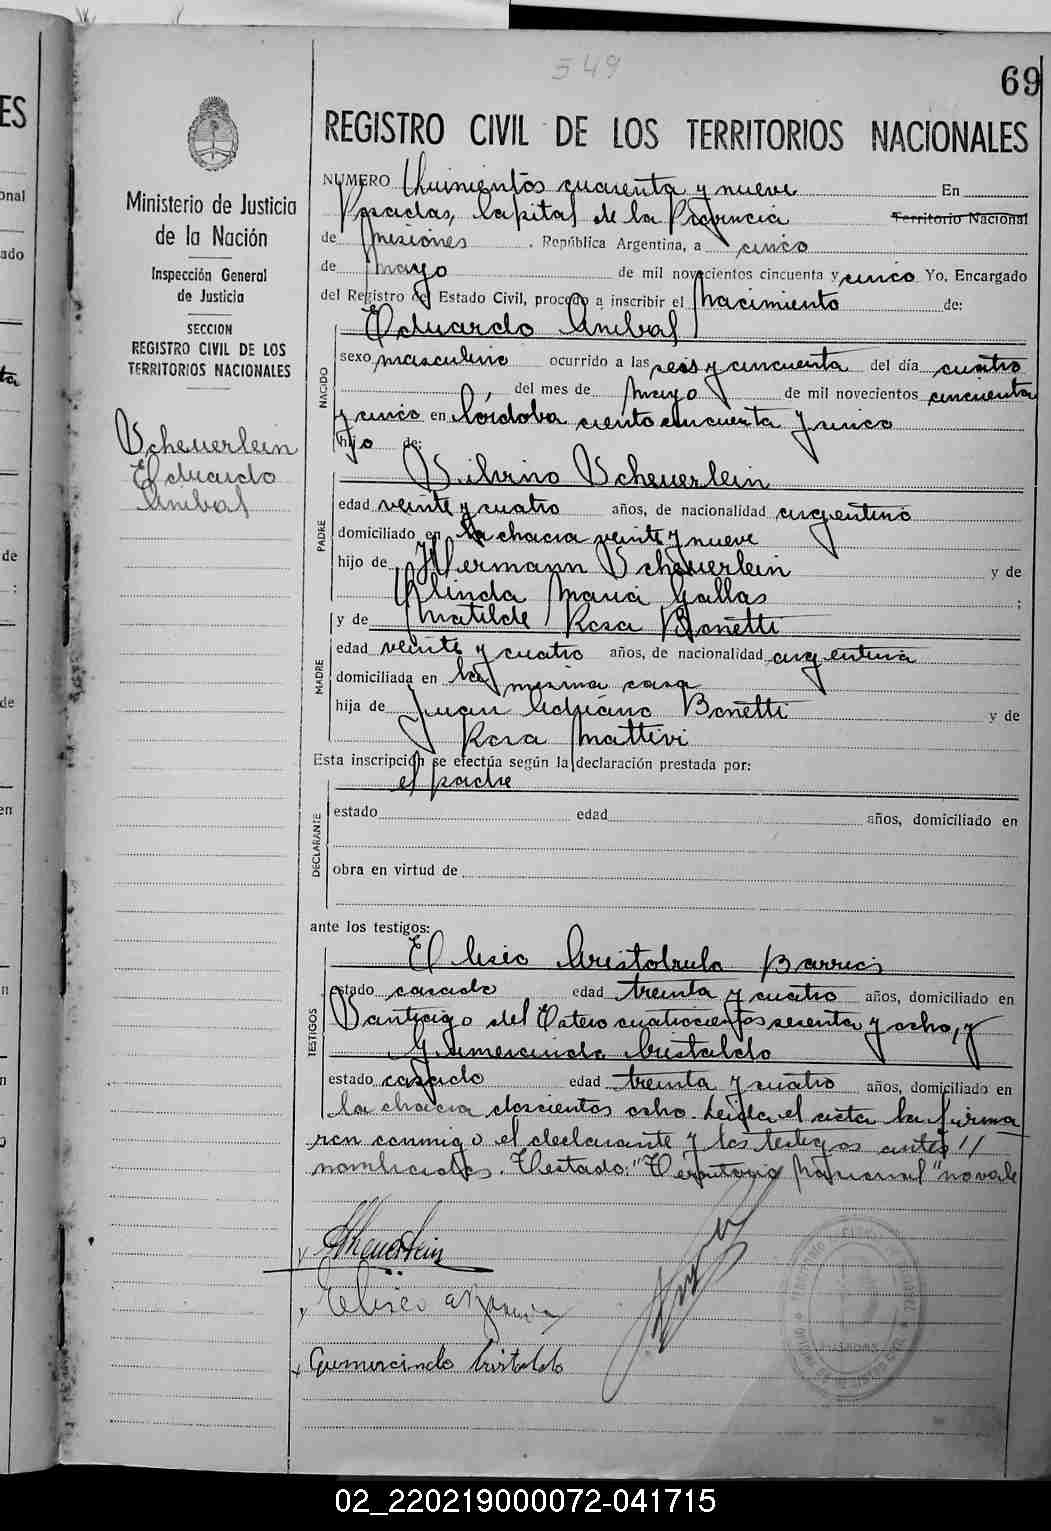 549
69
REGISTRO CIVIL DE LOS TERRITORIOS NACIONALES
Ministerio de Justicia
de la Nación
Inspección General
de Justicia
SECCION
REGISTRO CIVIL DE LOS
TERRITORIOS NACIONALES
Scheuerlein
Eduardo
Anibal
NUMERO Quinientos cuarenta y nueve En
Posadas, Capital de la Provincia Territorio Nacional
de Misiones, República Argentina, a cinco
de mayo de mil novecientos cincuenta y cinco Yo, Encargado
del Registro de Estado Civil, procedo a inscribir el Nacimiento de:
Eduardo Anibal
NACIDO
sexo masculino ocurrido a las seis y cincuenta del día cuatro
del mes de mayo de mil novecientos cincuenta
y cinco en Córdoba ciento cincuenta y cinco
hijo de:
Silvino Scheuerlein
PADRE
edad veinte y cuatro años, de nacionalidad argentino
domiciliado en la chacra veinte y nueve
hijo de Hermann Scheuerlein y de
Olinda Maria Gallas ;
y de Matilde Rosa Bonetti
MADRE
edad veinte y cuatro años, de nacionalidad argentina
domiciliada en la misma casa
hija de Juan Adriano Bonetti y de
Rosa Mattivi
Esta inscripción se efectúa según la declaración prestada por:
el padre
DECLARANTE
estado edad años, domiciliado en
obra en virtud de
ante los testigos:
Eliseo Aristobulo Barrios
TESTIGOS
estado casado edad treinta y cuatro años, domiciliado en
Santiago del Estero cuatrocientos sesenta y ocho, y
Gumercindo Cristaldo
estado casado edad treinta y cuatro años, domiciliado en
la chacra doscientos ocho. Leida el acta la firma
ron conmigo el declarante y los testigos antes //
nombrados. Testado: "Territorio Nacional" no vale
Scheuerlein
Eliseo
Gumercindo Cristaldo
POSADAS
02_220219000072-041715